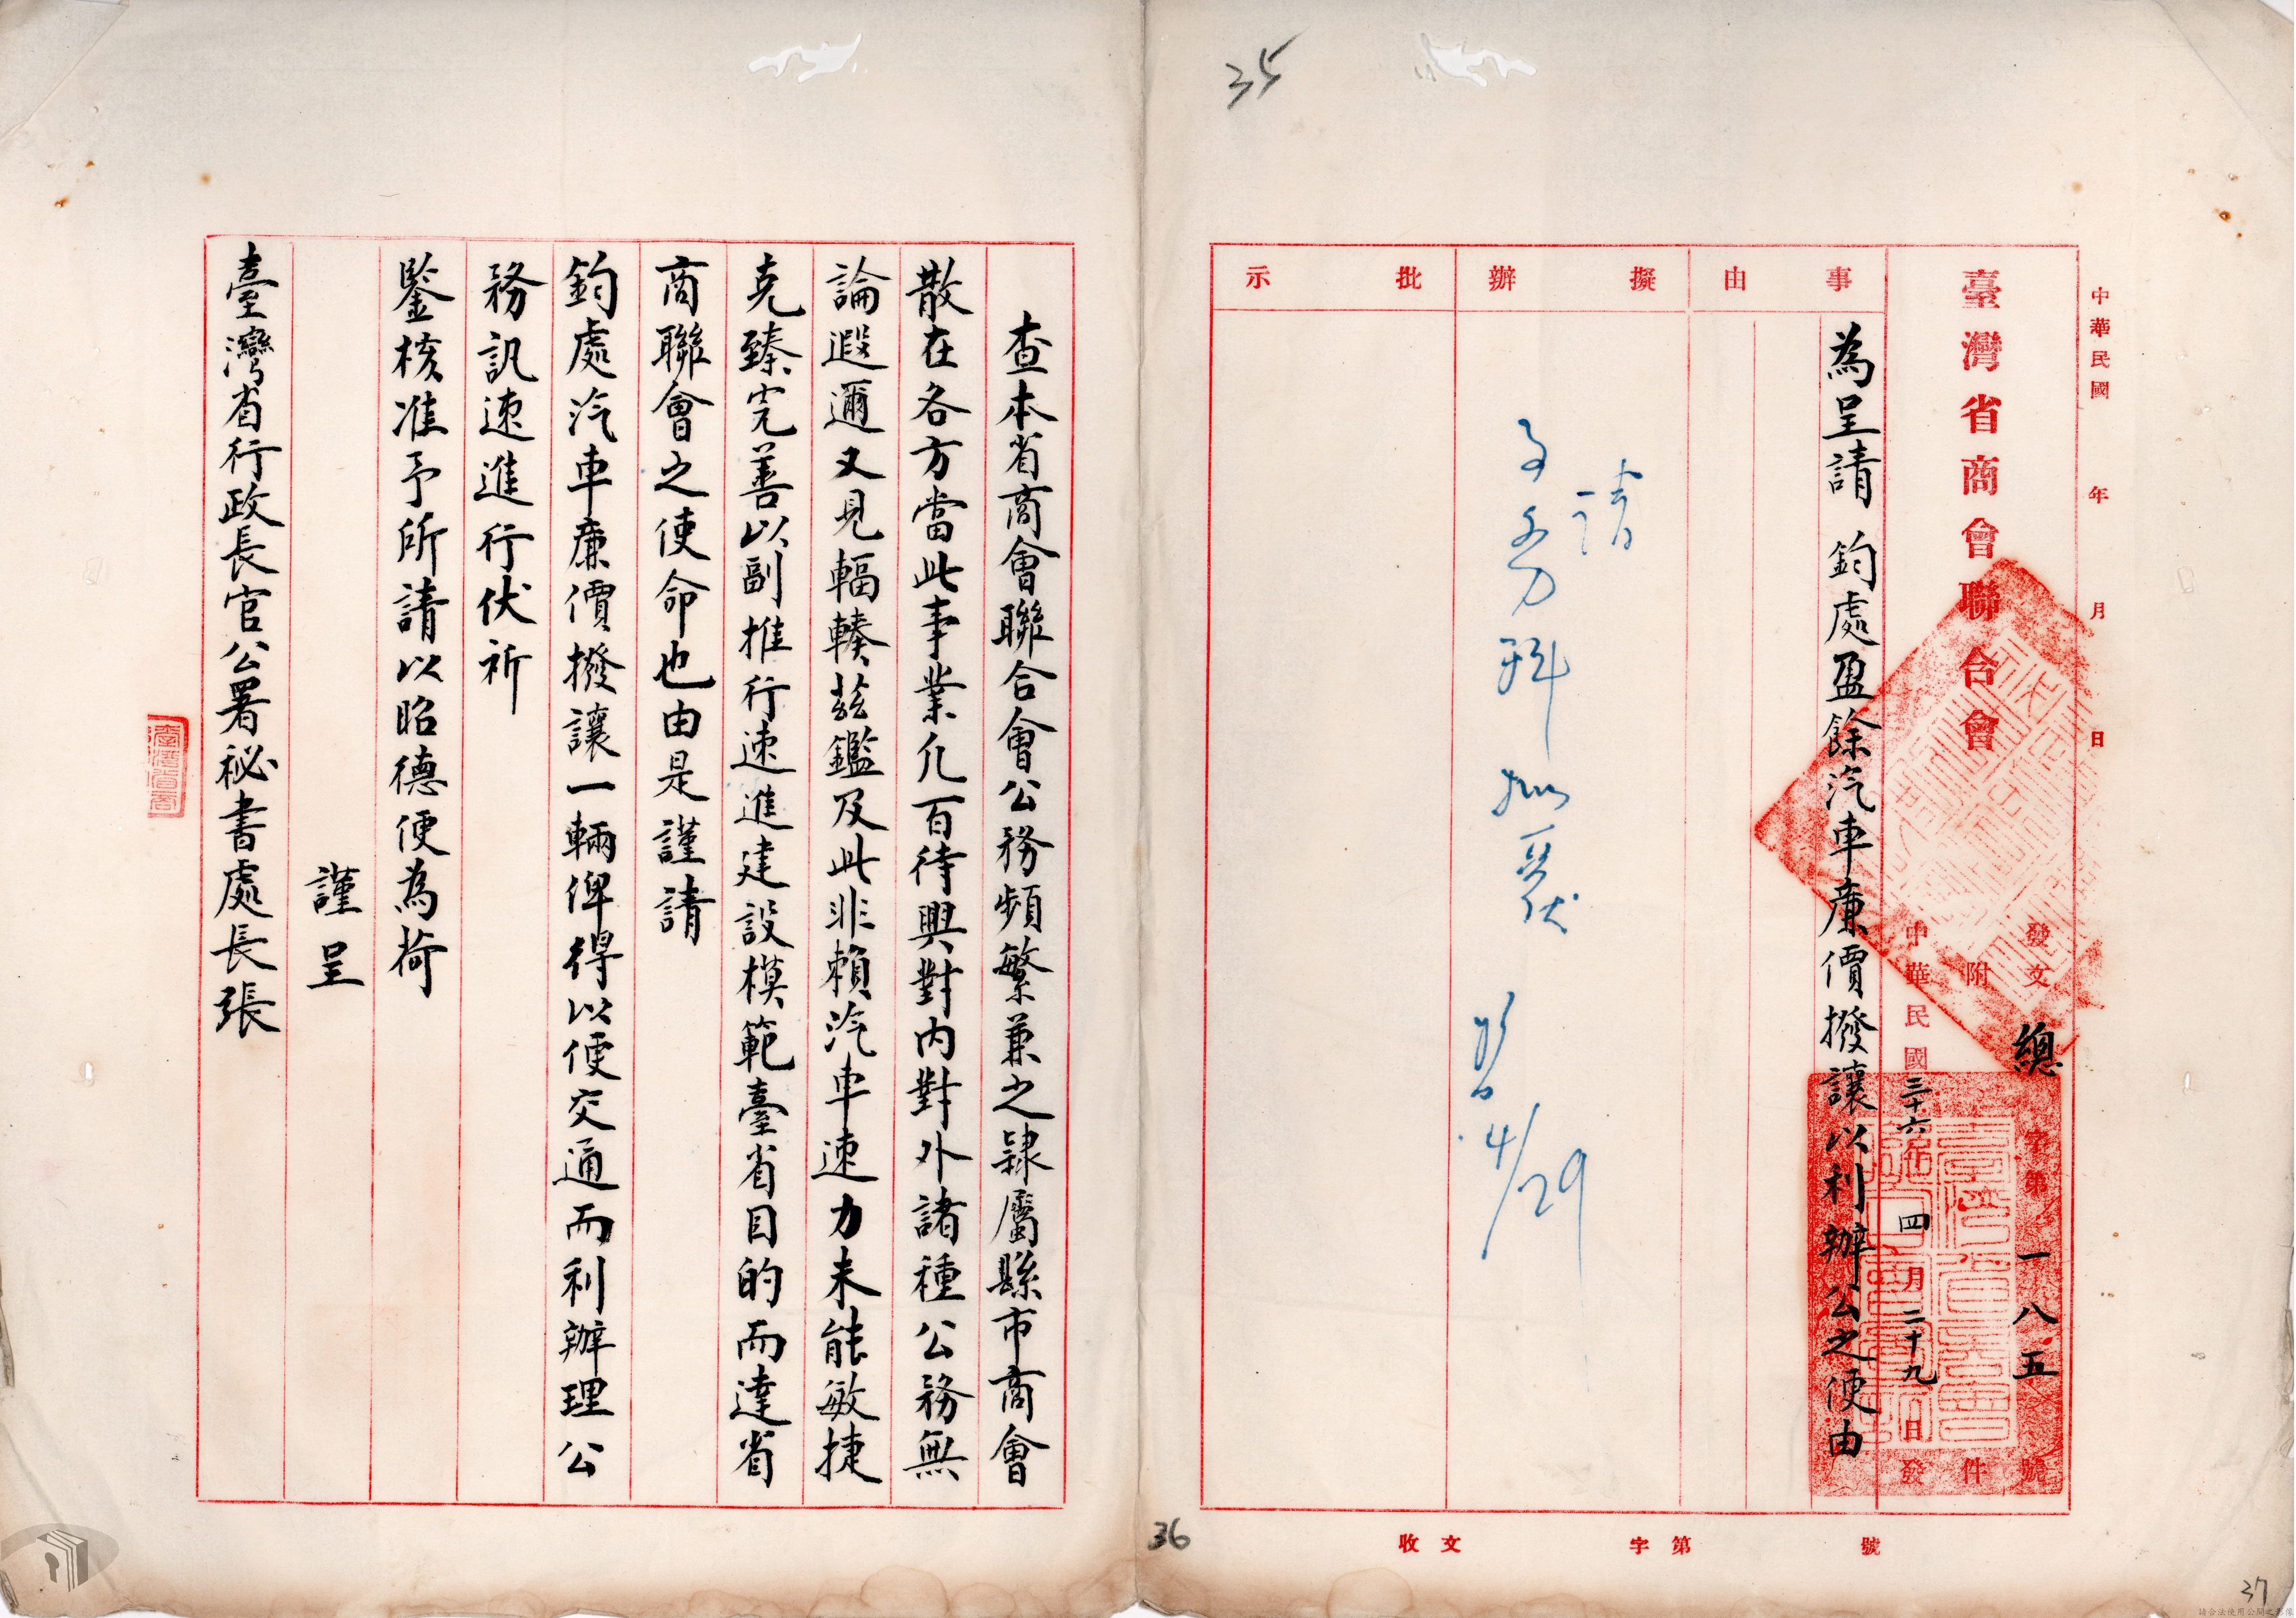 35
中華民國 年 月 日
臺灣省商會聯合會
發文 總字第一八五號
附 件
中華民國三十六年四月二十九日發
事由
為呈請 鈞處盈餘汽車廉價撥讓以利辦公之便由
擬辦
請
事務科
4/29
批示
收文 字第 號
37
查本省商會聯合會公務頻繁兼之隸屬縣市商會
散在各方當此事業凡百待興對內對外諸種公務無
論遐邇又見輻輳茲鑑及此非賴汽車速力未能敏捷
克臻完善以副推行速進建設模範臺省目的而達省
商聯會之使命也由是謹請
鈞處汽車廉價撥讓一輛俾得以便交通而利辦理公
務訊速進行伏祈
鑒核准予所請以昭德便為荷
謹呈
臺灣省行政長官公署秘書處長張
36
臺灣省商
請合法使用公開之影像